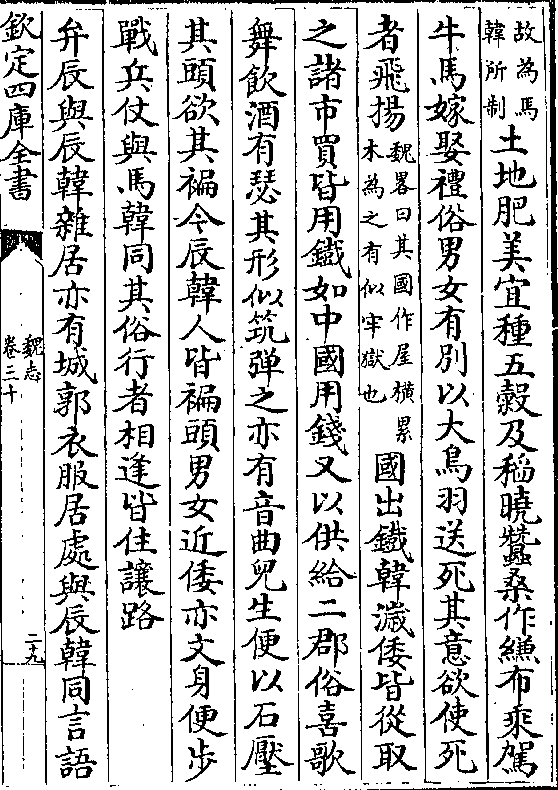 故為馬
韓所制
土地肥美宜種五穀及稻曉蠶桑作縑布乘駕
牛馬嫁娶禮俗男女有别以大鳥羽送死其意欲使死
者飛揚
魏畧曰其國作屋横累
木為之有似牢獄也
國出鐵韓濊倭皆從取
之諸市買皆用鐵如中國用錢又以供給二郡俗喜歌
舞飲酒有瑟其形似筑彈之亦有音曲兒生便以石壓
其頭欲其褊今辰韓人皆褊頭男女近倭亦文身便步
戰兵仗與馬韓同其俗行者相逢皆住讓路
弁辰與辰韓雜居亦有城郭衣服居處與辰韓同言語
欽定四庫全書
魏志
卷三十
二十九